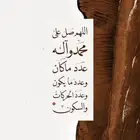 اللهم صل على
محمد وآله
عدد ما كان
وعدد ما يكون
وعدد الحركات
والسكون